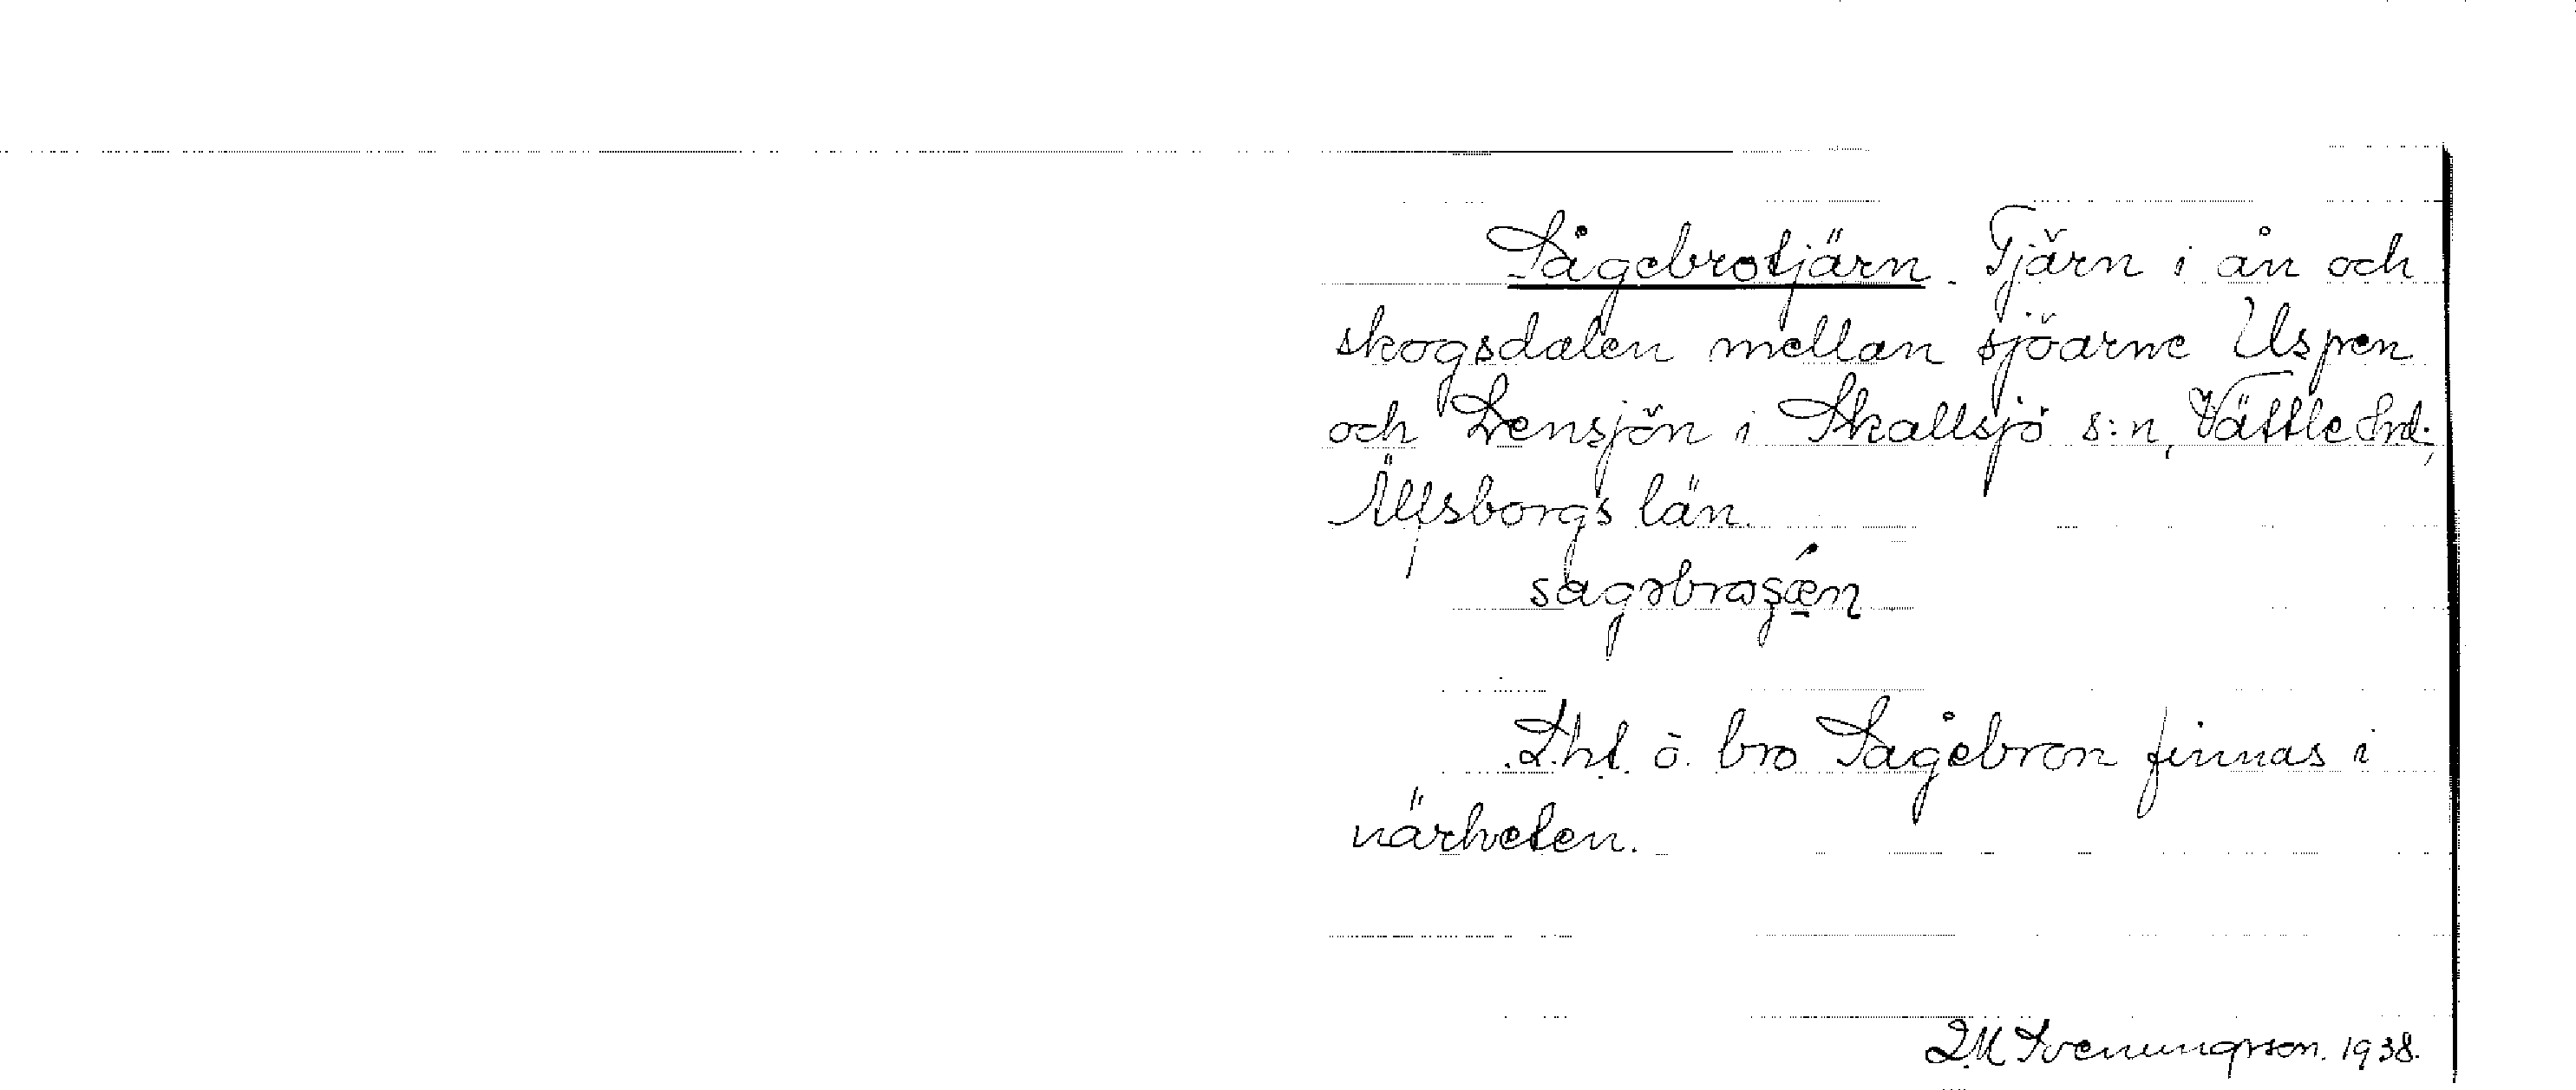 Sågebrotjärn. Tjärn i ån och
skogsdalen mellan sjöarne Uspen
och Lensjön i Skallsjö s:n, Vättle hd.,
Älfsborgs län.
Lht. o. bro Sågebron finnas i
närheten.
Svenungsson. 1938.